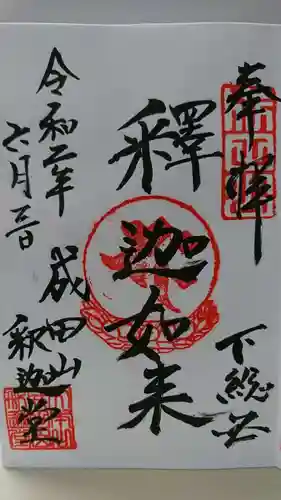 奉拝
下総国
釋迦如来
成田山
釈迦堂
令和二年
六月三日